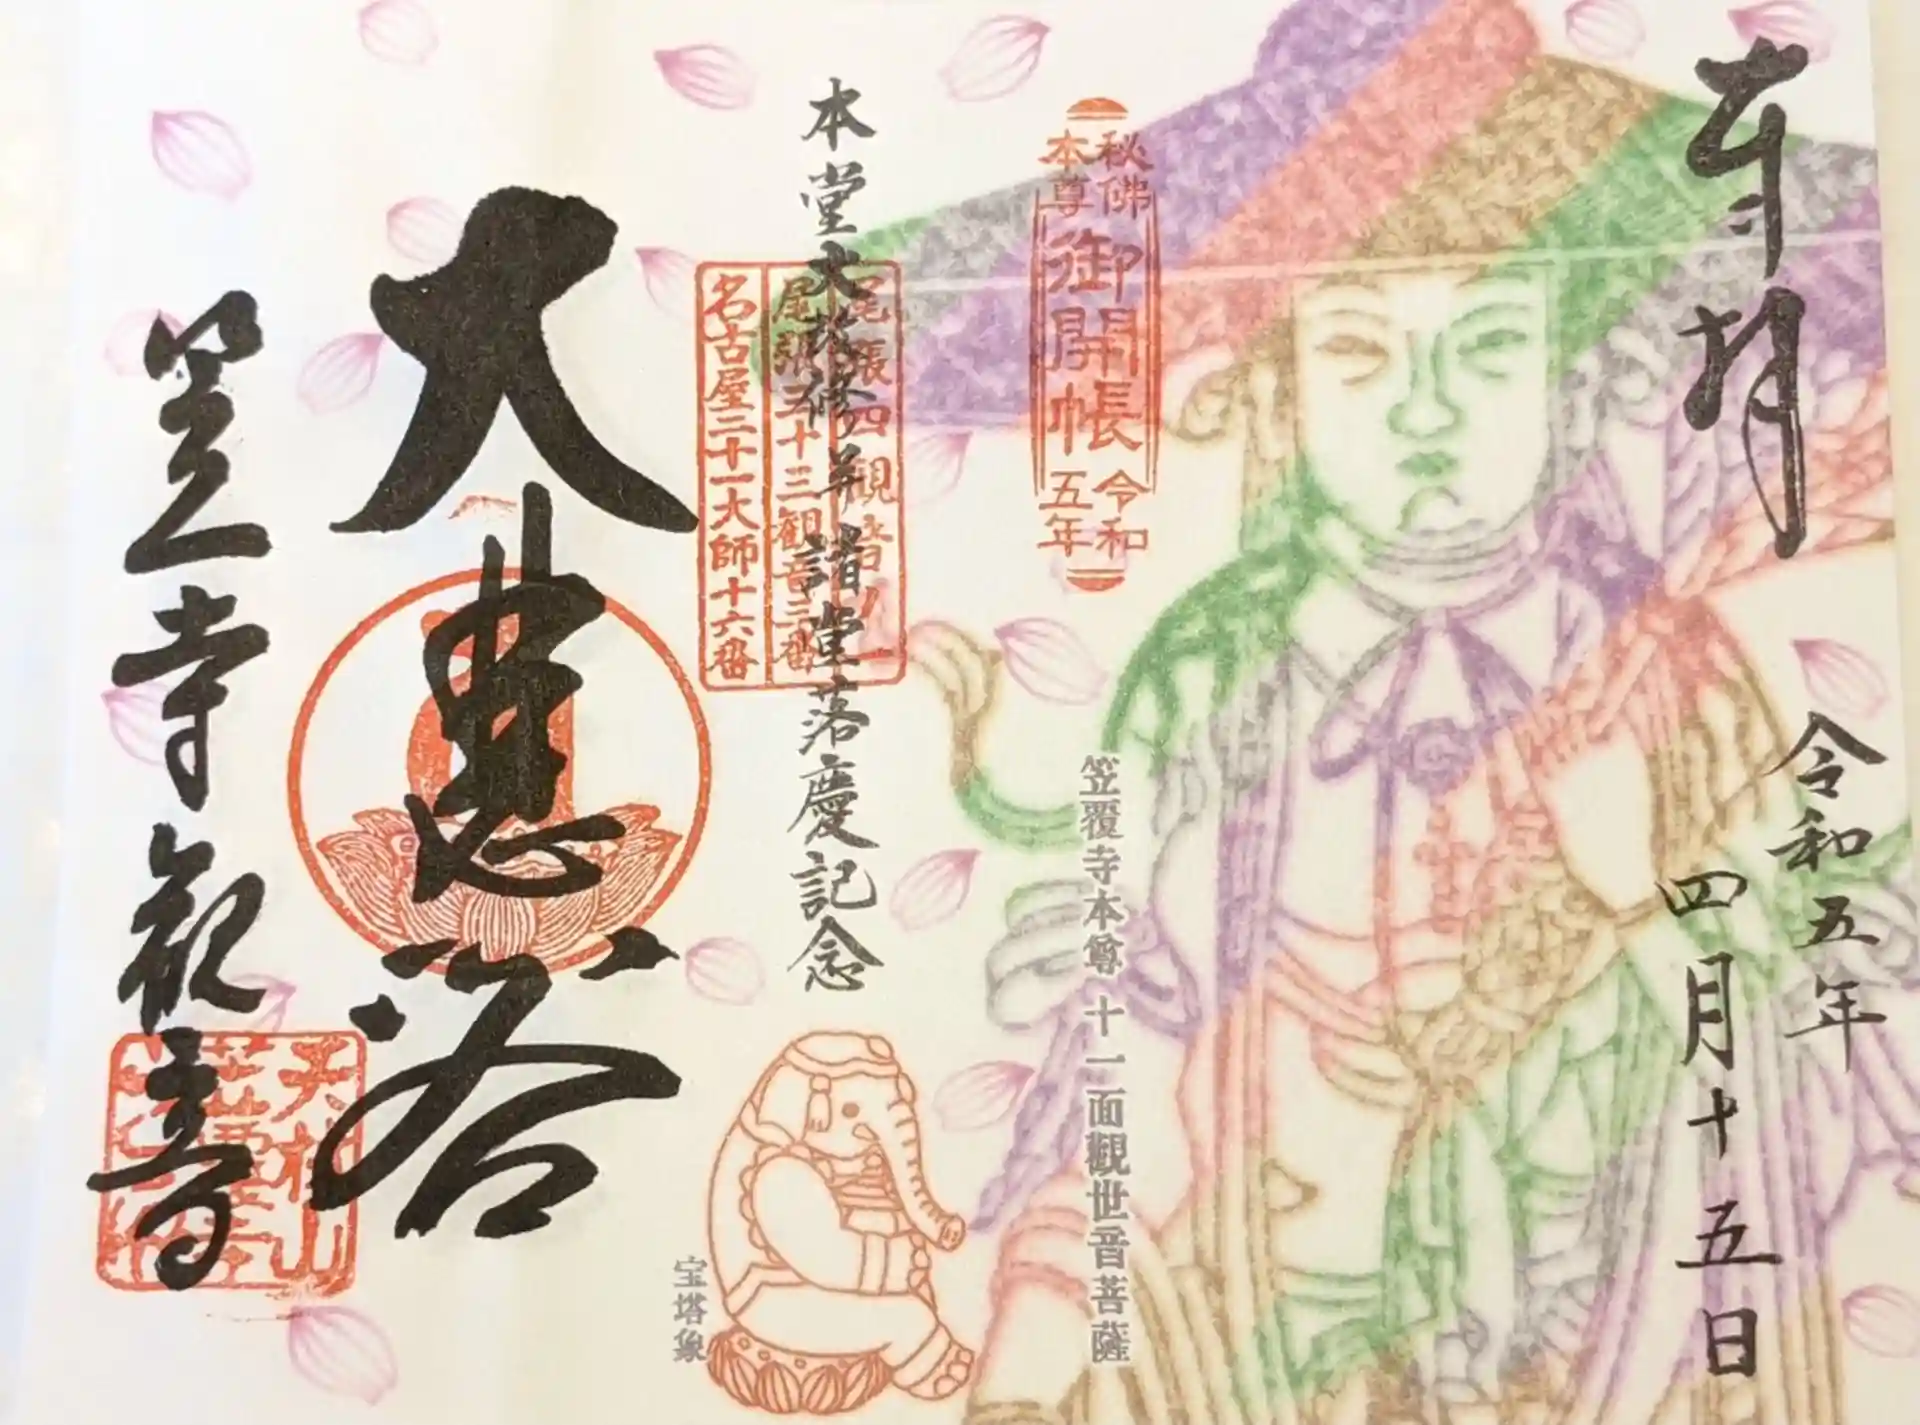 奉拝
令和五年
四月十五日
秘佛
本尊
御開帳
令和
五年
笠覆寺本尊 十一面觀世音菩薩
本堂大修修并諸堂落慶記念
尾張四観音ノ一
尾張三十三観音三番
名古屋二十一大師十六番
宝塔象
大悲
笠寺観音
天林山